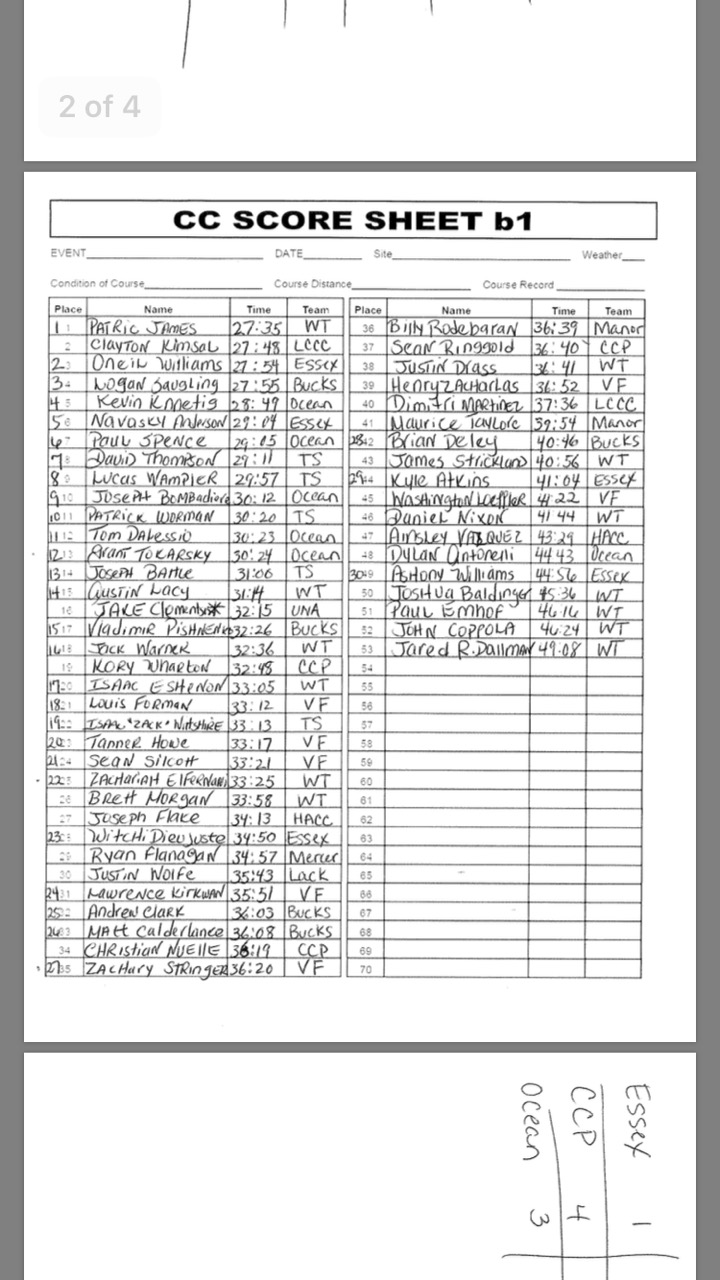 2 of 4
CC SCORE SHEET b1
EVENT DATE Site Weather
Condition of Course Course Distance Course Record
Place Name Time Team
1 1 PATRIC JAMES 27:35 WT
2 Clayton Kimsal 27:48 LCCC
2 3 Oneil Williams 27:54 Essex
3 4 Logan Saugling 27:55 Bucks
4 5 Kevin Knnetig 28:49 Ocean
5 6 Navasky Anderson 29:04 Essex
6 7 Paul Spence 29:05 Ocean
7 8 David Thompson 29:11 TS
8 9 Lucas Wampler 29:57 TS
9 10 Joseph Bombadiere 30:12 Ocean
10 11 PATRICK WORMAN 30:20 TS
11 12 Tom Dalessio 30:23 Ocean
12 13 Grant TOKARSKY 30:24 Ocean
13 14 Joseph Battle 31:06 TS
14 15 Austin Lacy 31:14 WT
16 JAKE Clements* 32:15 UNA
15 17 Vladimir 32:26 Bucks
16 18 Jack Warner 32:36 WT
19 KORY Wharton 32:48 CCP
17 20 ISAAC ESHENON 33:05 WT
18 21 Louis FORMAN 33:12 VF
19 22 ISAAC "ZACK" Wiltshire 33:13 TS
20 23 Tanner Howe 33:17 VF
21 24 Sean Silcott 33:21 VF
22 25 ZACHARIAH 33:25 WT
26 Brett Morgan 33:58 WT
27 Joseph Flake 34:13 HACC
23 28 Witchi Dieujuste 34:50 Essex
29 Ryan Flanagan 34:57 Mercer
30 JUSTIN Wolfe 35:43 Lack
24 31 Lawrence Kirkwan 35:51 VF
25 32 Andrew Clark 36:03 Bucks
26 33 Matt Calderlance 36:08 Bucks
34 CHRistian NUEllE 36:19 CCP
27 35 ZACHary STRingER 36:20 VF
Place Name Time Team
36 Billy Rodebaran 36:39 Manor
37 Sean Ringgold 36:40 CCP
38 JUSTIN Drass 36:41 WT
39 Henry ZACHARIAS 36:52 VF
40 Dimitri MARTINEZ 37:36 LCCC
41 Maurice Taylorc 39:54 Manor
28 42 Brian Deley 40:46 Bucks
43 James Strickland 40:56 WT
29 44 Kyle Atkins 41:04 Essex
45 Washington Loeffler 4:22 VF
46 Daniel Nixon 41 44 WT
47 Ainsley VASQUEZ 43:29 HACC
48 Dylan Antoreni 44 43 Ocean
30 49 Ashony Williams 44:56 Essex
50 Joshua Baldinger 45:36 WT
51 Paul Emhof 46:16 WT
52 JOHN COPPOLA 46:24 WT
53 Jared R. Dallman 49:08 WT
54
55
56
57
58
59
60
61
62
63
64
65
66
67
68
69
70
Essex 1
CCP 4
Ocean 3